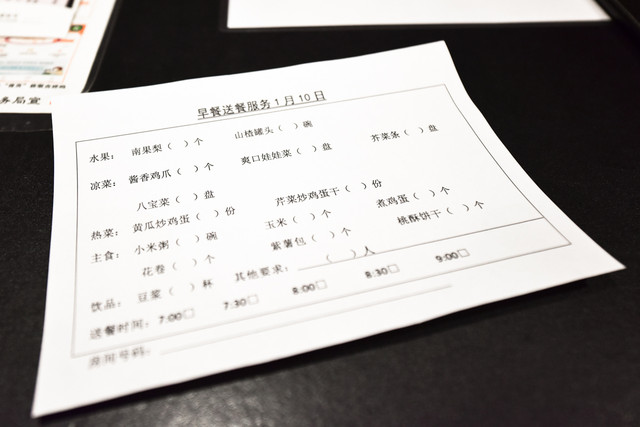 早餐送餐服务1月10日
水果： 南果梨（ ）个 山楂罐头（ ）碗
凉菜： 酱香鸡爪（ ）个 爽口娃娃菜（ ）盘 芥菜条（ ）盘
八宝菜（ ）盘
热菜： 黄瓜炒鸡蛋（ ）份 芹菜炒鸡蛋干（ ）份 煮鸡蛋（ ）个
主食： 小米粥（ ）碗 玉米（ ）个 桃酥饼干（ ）个
花卷（ ）个 紫薯包（ ）个
饮品： 豆浆（ ）杯 其他要求： （ ）人
送餐时间： 7:00□ 7:30□ 8:00□ 8:30□ 9:00□
房间号码：
务局宣